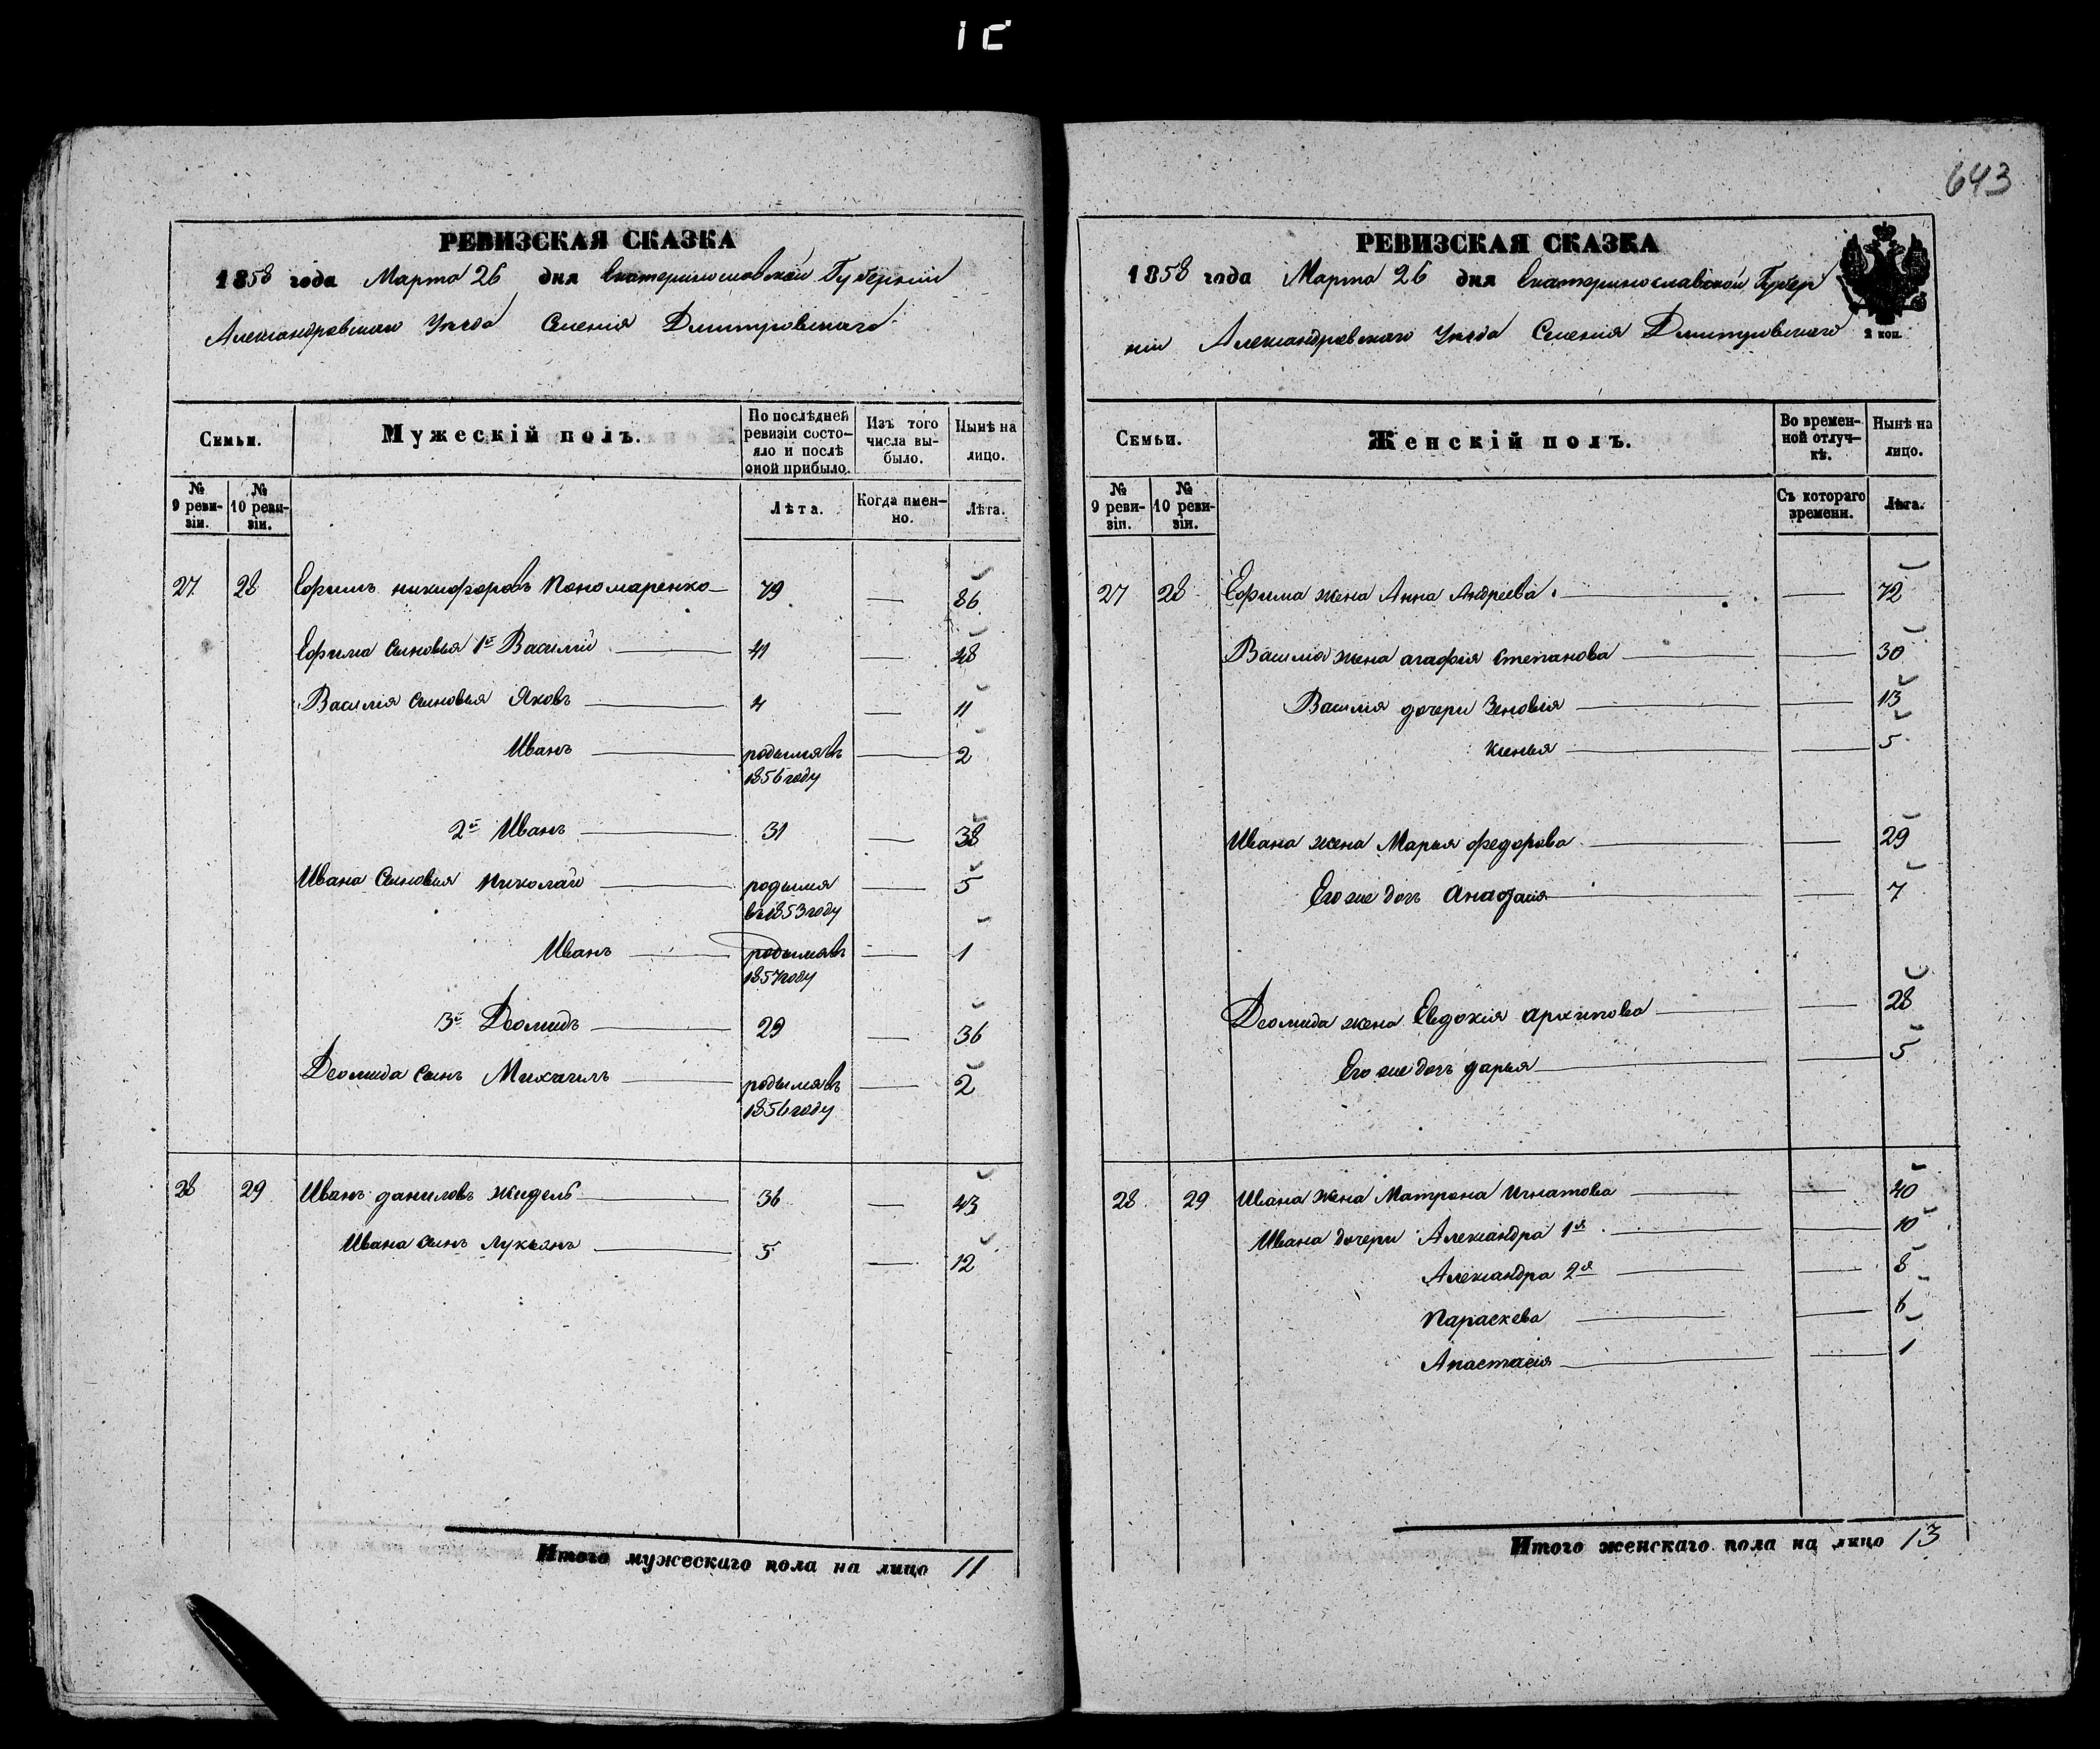 643
РЕВИЗСКАЯ СКАЗКА
1858 года Марта 26 дня Екатеринославской Губерніи
Александровскаго Уѣзда Селенія Дмитровскаго
Семьи.
Мужескій полъ.
По послѣдней ревизіи состояло и послѣ оной прибыло.
Изъ того числа выбыло.
Нынѣ на лицо.
№ 9 ревизіи.
№ 10 ревизіи.
Лѣта.
Когда именно.
Лѣта.
27 28 Ефимъ никифоровъ Пономаренко 79 — 86
Ефима сыновья 1й Василій 41 — 48
Василія сыновья Яковъ 4 — 11
Иванъ родился въ 1856 году — 2
2й Иванъ 31 — 38
Ивана Сыновья Николай родился въ 1853 году — 5
Иванъ родился въ 1857 году — 1
3й Деомидъ 29 — 36
Деомида сынъ Михаилъ родился въ 1856 году — 2
28 29 Иванъ даниловъ жидель 36 — 43
Ивана сынъ Лукьянъ 5 — 12
Итого мужескаго пола на лицо 11
РЕВИЗСКАЯ СКАЗКА
1858 года Марта 26 дня Екатеринославской Губер
ніи Александровскаго Уѣзда Селенія Дмитровскаго
2 коп.
Семьи.
Женскій полъ.
Во временной отлучкѣ.
Нынѣ на лицо.
№ 9 ревизіи.
№ 10 ревизіи.
Съ котораго времени.
Лѣта.
27 28 Ефима жена Анна Андреева — 72
Василія жена агафія степанова — 30
Василія дочери Зеновія — 13
Ксенья — 5
Ивана жена Марья федорова — 29
Его же дочь Анастасія — 7
Деомида жена Евдокия архипова — 28
Его же дочь дарья — 5
28 29 Ивана жена Матрона Игнатова — 40
Ивана дочери Александра 1я — 10
Александра 2я — 8
Параскева — 6
Анастасія — 1
Итого женскаго пола на лицо 13